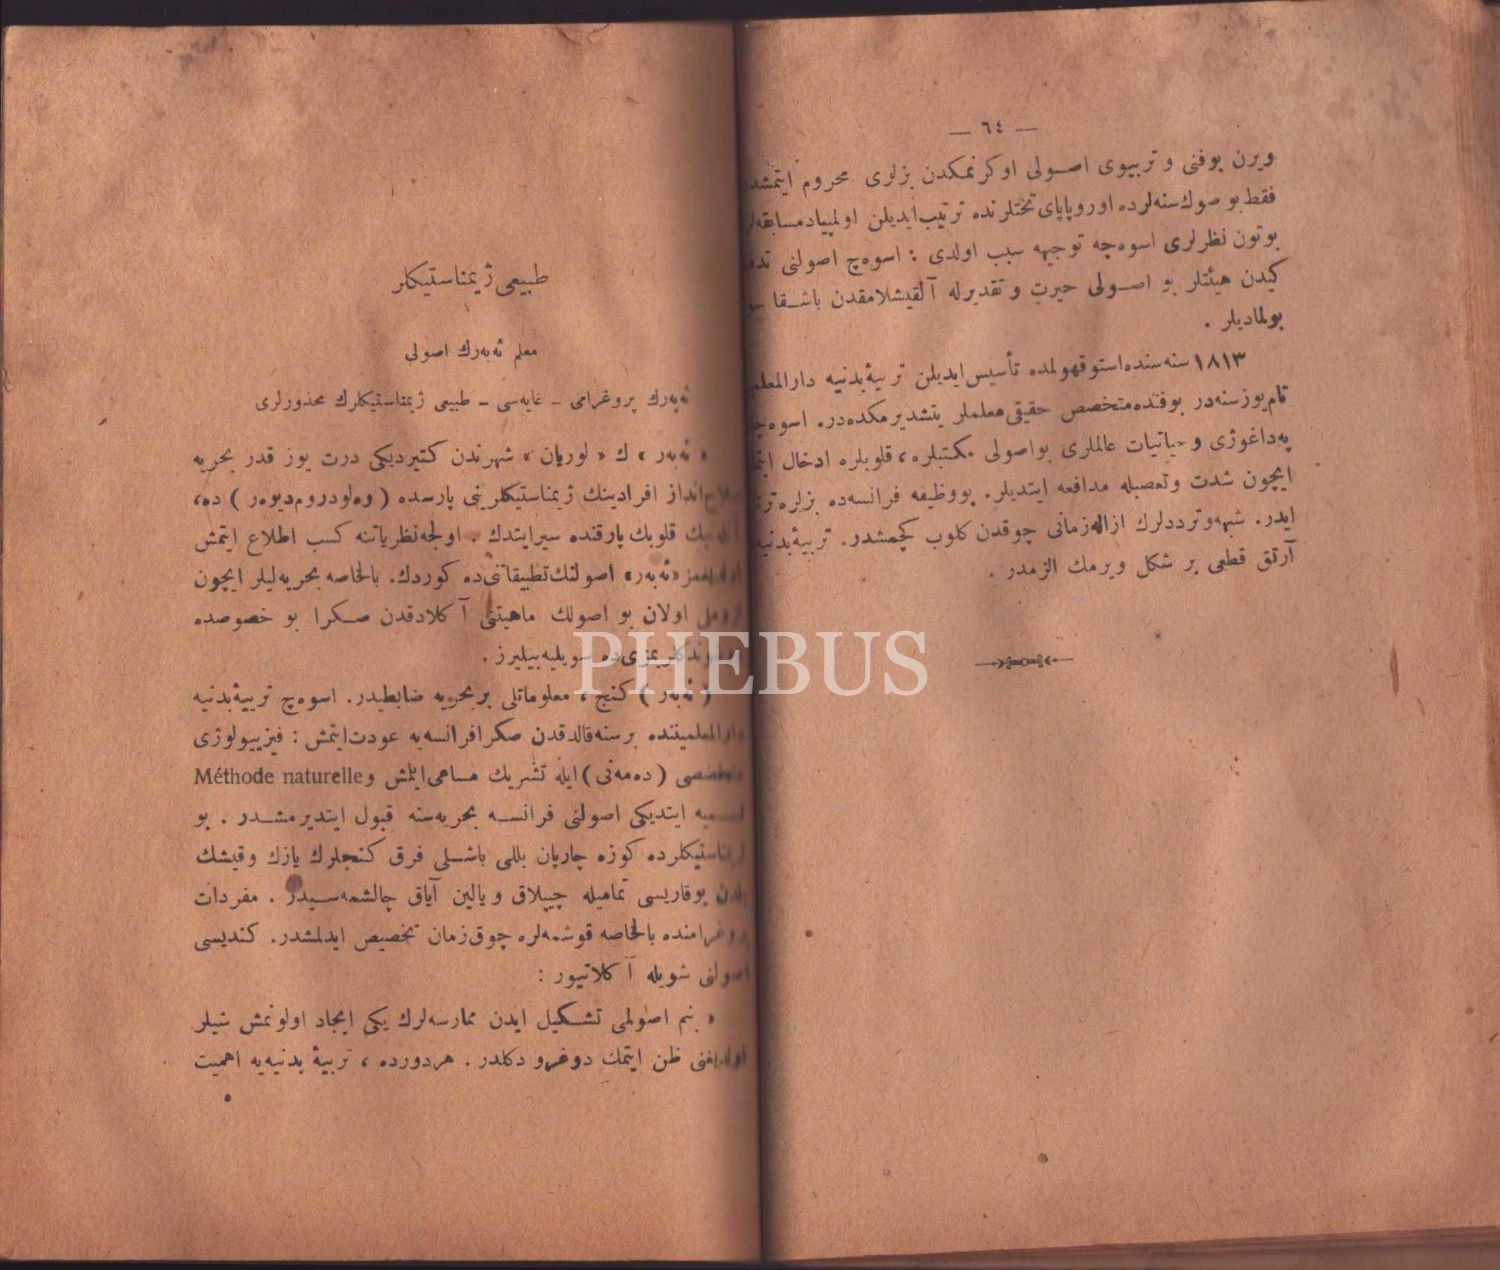 — ٦٤ —
ويرن بوفنى وتربيوى اصولى اوكرنمكدن بزلرى محروم ايتمشدر
فقط بو صوك سنه‌لرده اوروپا پاى تختلرنده ترتيب ايديلن اولمپياد مسابقه‌لر
بوتون نظرلرى اسوه‌چه توجيهه سبب اولدى : اسوه‌چ اصولنى
كيدن هيئتلر بو اصولى حيرت وتقديرله آلقيشلامقدن باشقا
بولماديلر .
١٨١٣ سنه‌سنده استوقهولمده تأسيس ايديلن تربيۀ بدنيه دارالمعلم
تام يوز سنه‌در بوفنده متخصص حقيقى معلملر يتشديرمكده‌در. اسوه‌چ
په‌داغوژى و حياتيات عالملرى بواصولى مكتبلره ، قلوبلره ادخال
ايچون شدت وتعصبله مدافعه ايتديلر. بووظيفه فرانسه‌ده بزلره
ايدر. شبهه وترددلرك ازاله زمانى چوقدن كلوب كچمشدر. تربيۀ بدنيه
آرتق قطعى بر شكل ويرمك الزمدر .
طبيعى ژيمناستيكلر
معلم ئه‌به‌رك اصولى
ئه‌به‌رك پروغرامى ـ غايه‌سى ـ طبيعى ژيمناستيكلرك محذورلرى
« ئه‌به‌ر » ك « لوريان » شهرندن كتيرديكى درت يوز قدر بحريه
افرادينك ژيمناستيكلرينى پارسده ( وه‌لودروم ديوه‌ر ) ده،
قلوبك پارقنده سير ايتدك . اولجه نظرياتنه كسب اطلاع ايتمش
«ئه‌به‌ر» اصولنك تطبيقاتنى ده كوردك. بالخاصه بحريه‌ليلر ايچون
اولان بو اصولك ماهيتنى آكلادقدن صكرا بو خصوصده
سويليه‌بيليرز .
( ئه‌به‌ر ) كنج ، معلوماتلى بر بحريه ضابطيدر. اسوه‌چ تربيۀ بدنيه
دارالمعلميننده بر سنه قالدقدن صكر افرانسه‌يه عودت ايتمش : فيزييولوژى
( ده‌مه‌نى ) ايله تشريك مساعى ايلمش و Méthode naturelle
ايتديكى اصولنى فرانسه بحريه‌سنه قبول ايتديرمشدر . بو
كوزه چارپان بللى باشلى فرق كنجلرك يازك وقيشك
يوقاريسى تماميله چيپلاق ويالين آياق چالشمه‌سيدر . مفردات
بالخاصه قوشمه‌لره چوق زمان تخصيص ايدلمشدر. كنديسى
اصولنى شويله آكلاتيور :
« بنم اصولمى تشكيل ايدن ممارسه‌لرك يكى ايجاد اولونمش شيلر
اولديغنى ظن ايتمك دوغرو دكلدر. هر دورده ، تربيۀ بدنيه‌يه اهميت
٥
PHEBUS